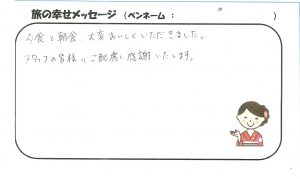 旅の幸せメッセージ（ペンネーム：　　　　）
夕食と朝食、大変おいしくいただきました。
スタッフの皆様のご配慮に感謝いたします。